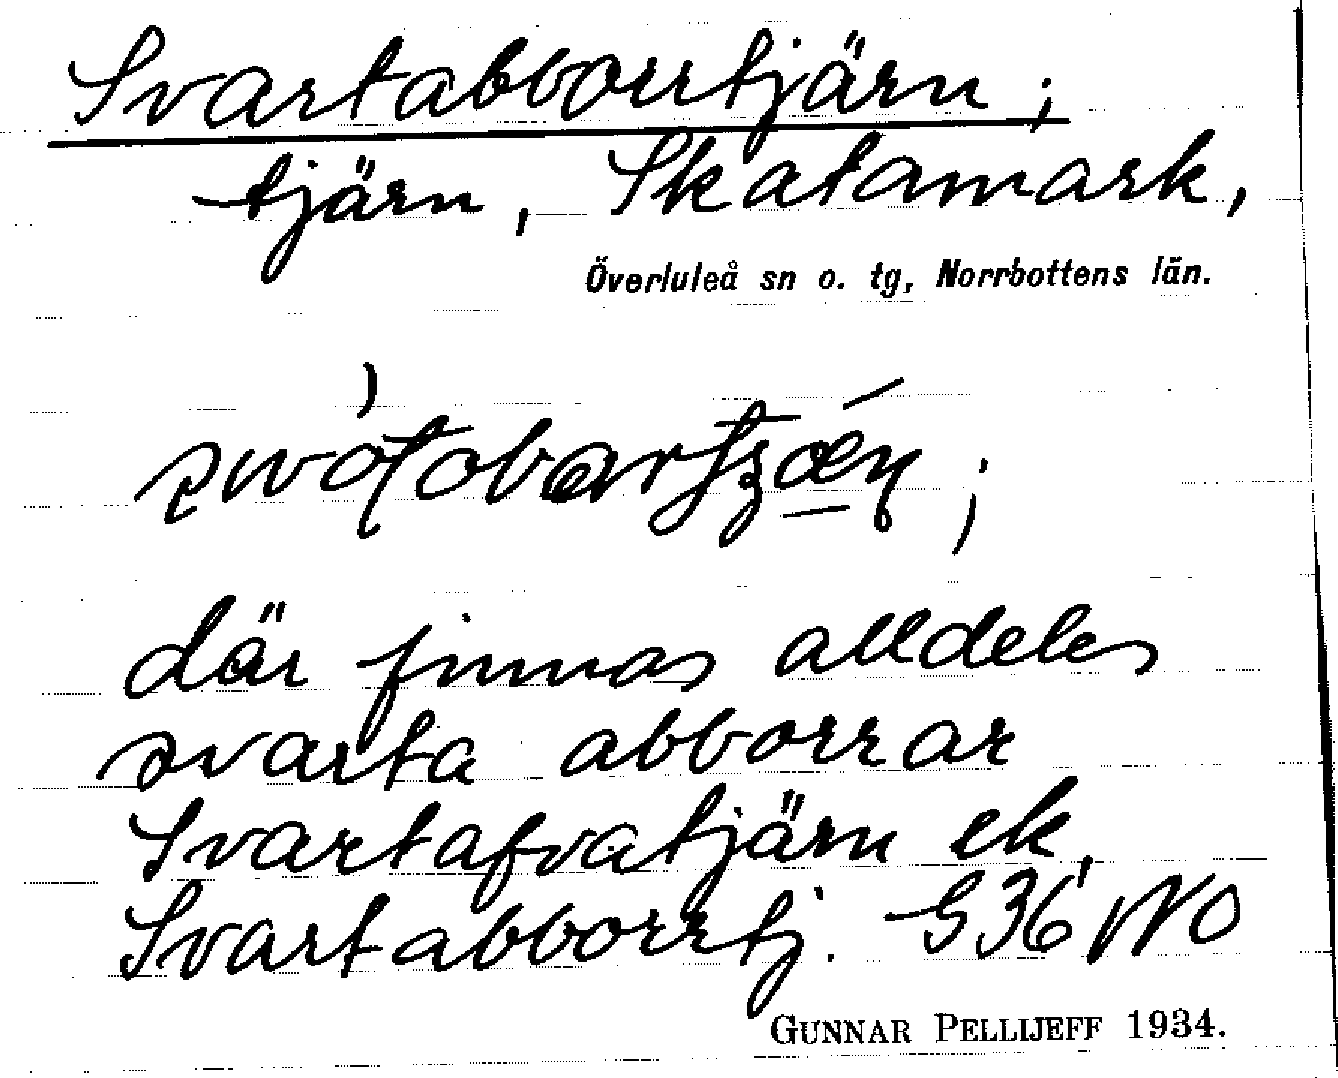 Svartabborrtjärn;
tjärn, Skatamark,
Överluleå sn o. tg, Norrbottens län.
där finnas alldeles
svarta abborrar
Svartafvatjärn ek,
Svartabborrtj. G36 NO
GUNNAR PELLIJEFF 1934.